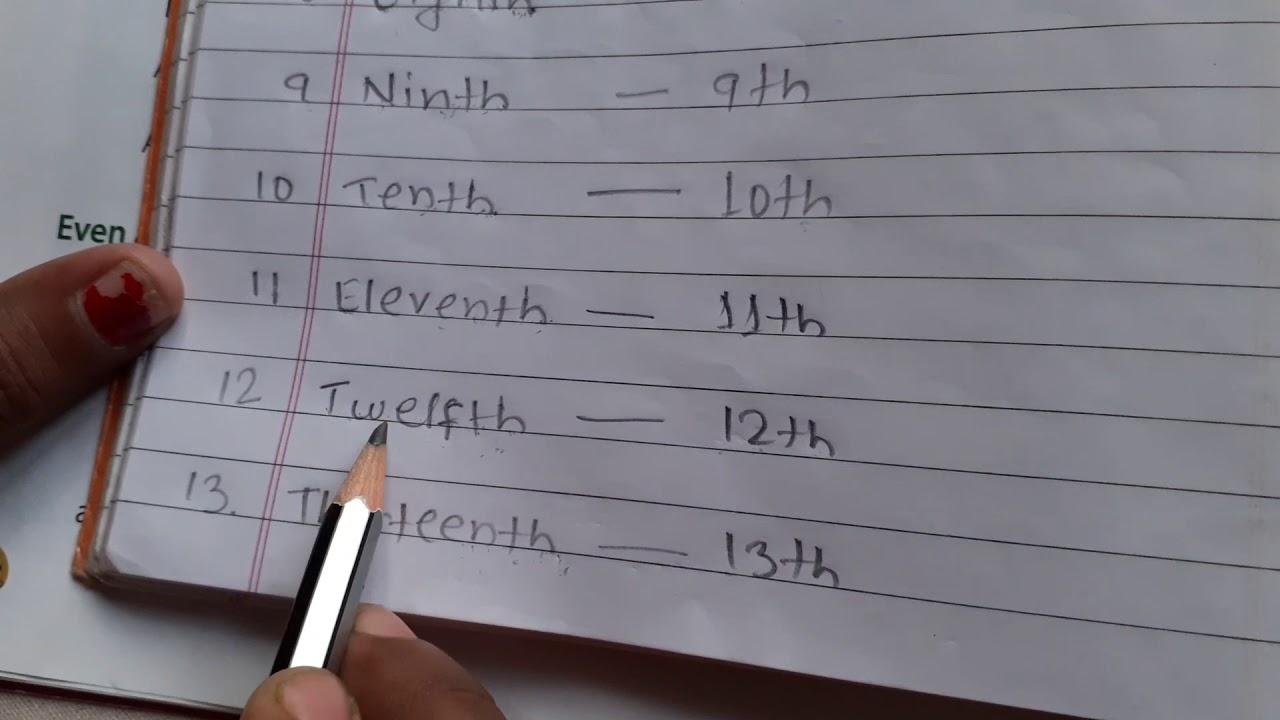 9 Ninth — 9th
10 Tenth — 10th
11 Eleventh — 11th
12 Twelfth — 12th
13. Thirteenth — 13th
Even